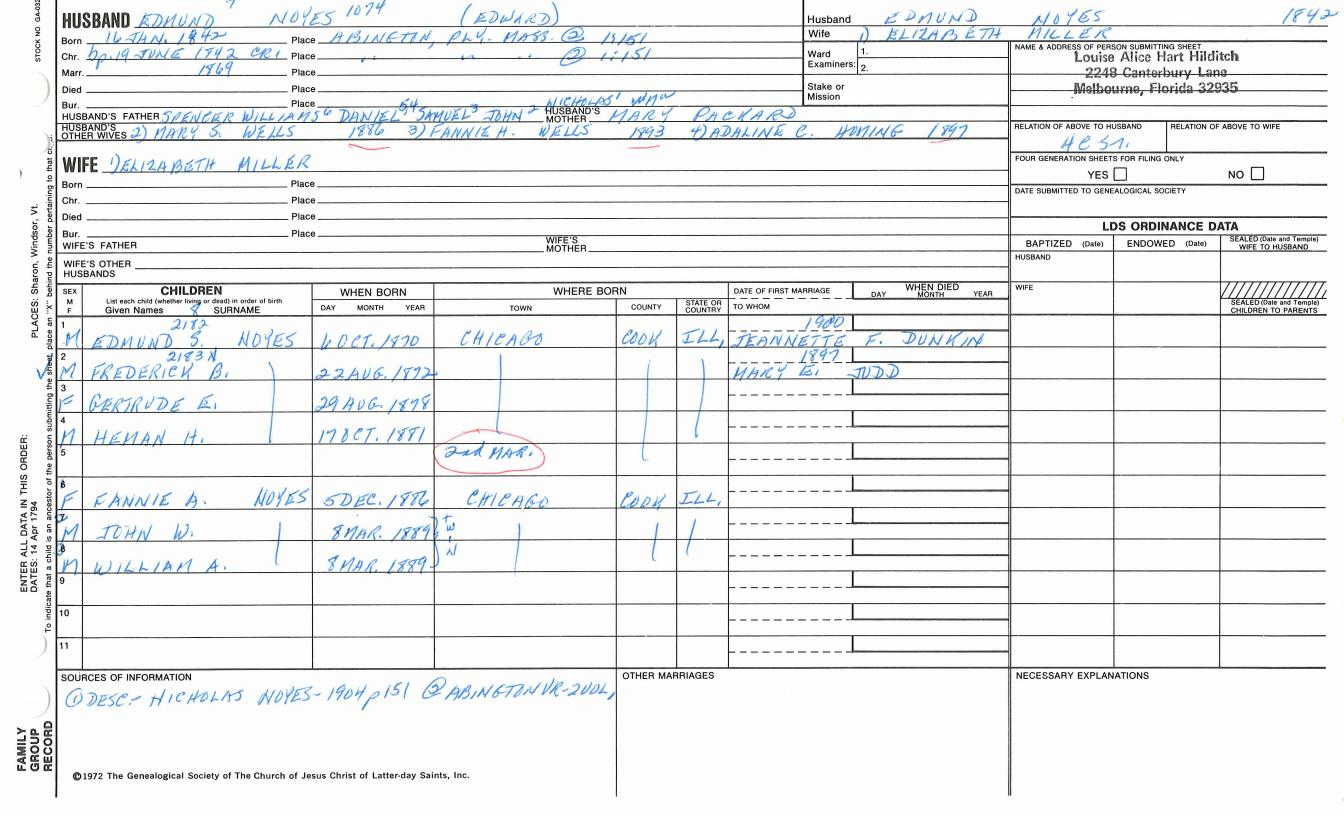 STOCK NO GA-032
HUSBAND EDMUND NOYES 1074 (EDWARD)
Born 16 JAN. 1842 Place ABINGTON, PLY. MASS. @ 1:151
Chr. bp. 19 JUNE 1742 CR1 Place " " " @ 1:151
Marr. 1869 Place
Died Place
Bur. Place
HUSBAND'S FATHER SPENCER WILLIAMS⁶ DANIEL⁵⁴ SAMUEL³ JOHN² NICHOLAS¹ Wmw HUSBAND'S MOTHER MARY PACKARD
HUSBAND'S OTHER WIVES 2) MARY S. WELLS 1886 3) FANNIE H. WELLS 1893 4) ADALINE C. HOMING 1897
WIFE 1) ELIZABETH MILLER
Born Place
Chr. Place
Died Place
Bur. Place
WIFE'S FATHER WIFE'S MOTHER
WIFE'S OTHER HUSBANDS
Husband EDMUND NOYES 1842
Wife 1) ELIZABETH MILLER
Ward Examiners: 1.
2.
Stake or Mission
NAME & ADDRESS OF PERSON SUBMITTING SHEET
Louise Alice Hart Hilditch
2248 Canterbury Lane
Melbourne, Florida 32935
RELATION OF ABOVE TO HUSBAND RELATION OF ABOVE TO WIFE
FOUR GENERATION SHEETS FOR FILING ONLY
YES NO
DATE SUBMITTED TO GENEALOGICAL SOCIETY
LDS ORDINANCE DATA
BAPTIZED (Date) ENDOWED (Date) SEALED (Date and Temple) WIFE TO HUSBAND
HUSBAND
WIFE
SEALED (Date and Temple) CHILDREN TO PARENTS
SEX M F CHILDREN WHEN BORN WHERE BORN DATE OF FIRST MARRIAGE WHEN DIED
List each child (whether living or dead) in order of birth
Given Names 8 SURNAME DAY MONTH YEAR TOWN COUNTY STATE OR COUNTRY TO WHOM DAY MONTH YEAR
1 2182 1900
M EDMUND S. NOYES 6 OCT. 1870 CHICAGO COOK ILL, JEANNETTE F. DUNKIN
2 2183N 1897
M FREDERICK B. 22 AUG. 1872 MARY E. JUDD
3
F GERTRUDE E. 29 AUG. 1878
4
M HEMAN H. 17 OCT. 1881
5 2nd MAR.
6
F FANNIE A. NOYES 5 DEC. 1886 CHICAGO COOK ILL,
7
M JOHN W. 8 MAR. 1889 TWIN
8
M WILLIAM A. 8 MAR. 1889
9
10
11
SOURCES OF INFORMATION OTHER MARRIAGES NECESSARY EXPLANATIONS
① DESC:- NICHOLAS NOYES-1904 p151 ② ABINGTON VR-2VOL,
©1972 The Genealogical Society of The Church of Jesus Christ of Latter-day Saints, Inc.
ENTER ALL DATA IN THIS ORDER:
DATES: 14 Apr 1794
PLACES: Sharon, Windsor, Vt.
To indicate that a child is an ancestor of the person submitting the sheet, place an "X" behind the number pertaining to that
FAMILY GROUP RECORD